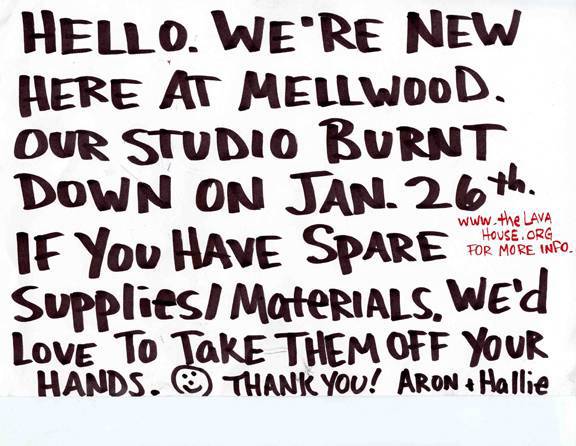 HELLO. WE'RE NEW
HERE AT MELLWOOD.
OUR STUDIO BURNT
DOWN ON JAN. 26th.
www.theLAVA
HOUSE.ORG
FOR MORE INFO.
IF YOU HAVE SPARE
SUPPLIES/MATERIALS. WE'd
LOVE TO TAKE THEM OFF YOUR
HANDS. ☺ THANK YOU! ARON + Hallie